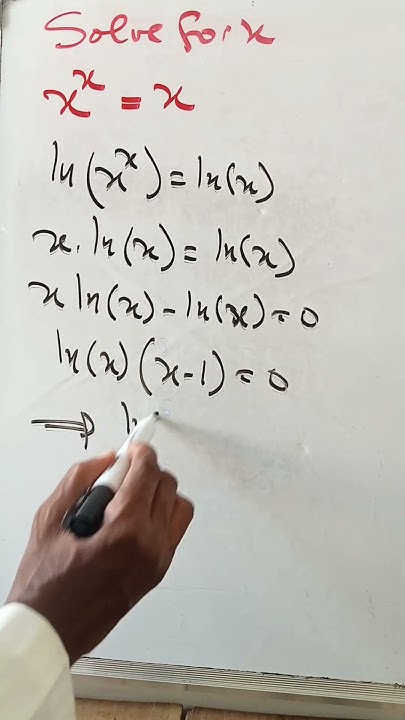 Solve for x
x^x = x
ln(x^x) = ln(x)
x. ln(x) = ln(x)
x ln(x) - ln(x) = 0
ln(x)(x-1) = 0
⟹ ln